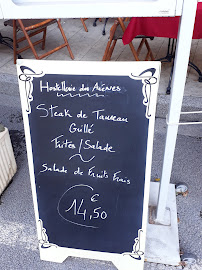 Hostellerie des Arènes
Steak de Taureau
Grillé
Frites/Salade
Salade de Fruits Frais
€
14,50